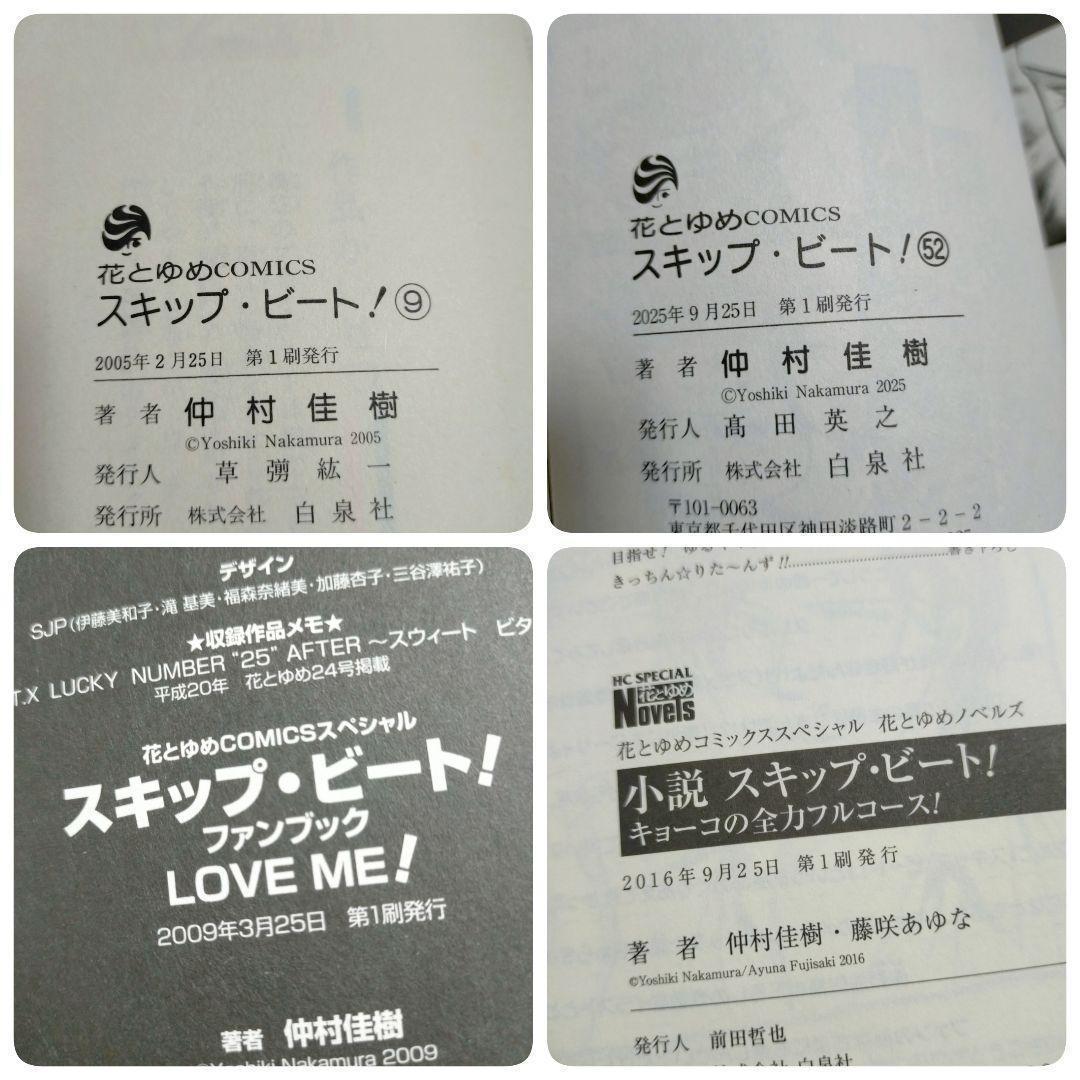 花とゆめCOMICS
スキップ・ビート!⑨
2005年2月25日 第1刷発行
著者 仲村佳樹
©Yoshiki Nakamura 2005
発行人 草彅紘一
発行所 株式会社 白泉社
花とゆめCOMICS
スキップ・ビート!㊾
2025年9月25日 第1刷発行
著者 仲村佳樹
©Yoshiki Nakamura 2025
発行人 髙田英之
発行所 株式会社 白泉社
〒101-0063
東京都千代田区神田淡路町2-2-2
デザイン
SJP(伊藤美和子・滝 基美・福森奈緒美・加藤杏子・三谷澤祐子)
★収録作品メモ★
T.X LUCKY NUMBER "25" AFTER ～スウィート ビタ
平成20年 花とゆめ24号掲載
花とゆめCOMICSスペシャル
スキップ・ビート!
ファンブック
LOVE ME!
2009年3月25日 第1刷発行
著者 仲村佳樹
©Yoshiki Nakamura 2009
目指せ!
きっちん☆りた～んず!!
HC SPECIAL
花とゆめ
Novels
花とゆめコミックススペシャル 花とゆめノベルズ
小説 スキップ・ビート!
キョーコの全力フルコース!
2016年9月25日 第1刷発行
著者 仲村佳樹・藤咲あゆな
©Yoshiki Nakamura/Ayuna Fujisaki 2016
発行人 前田哲也
株式会社 白泉社